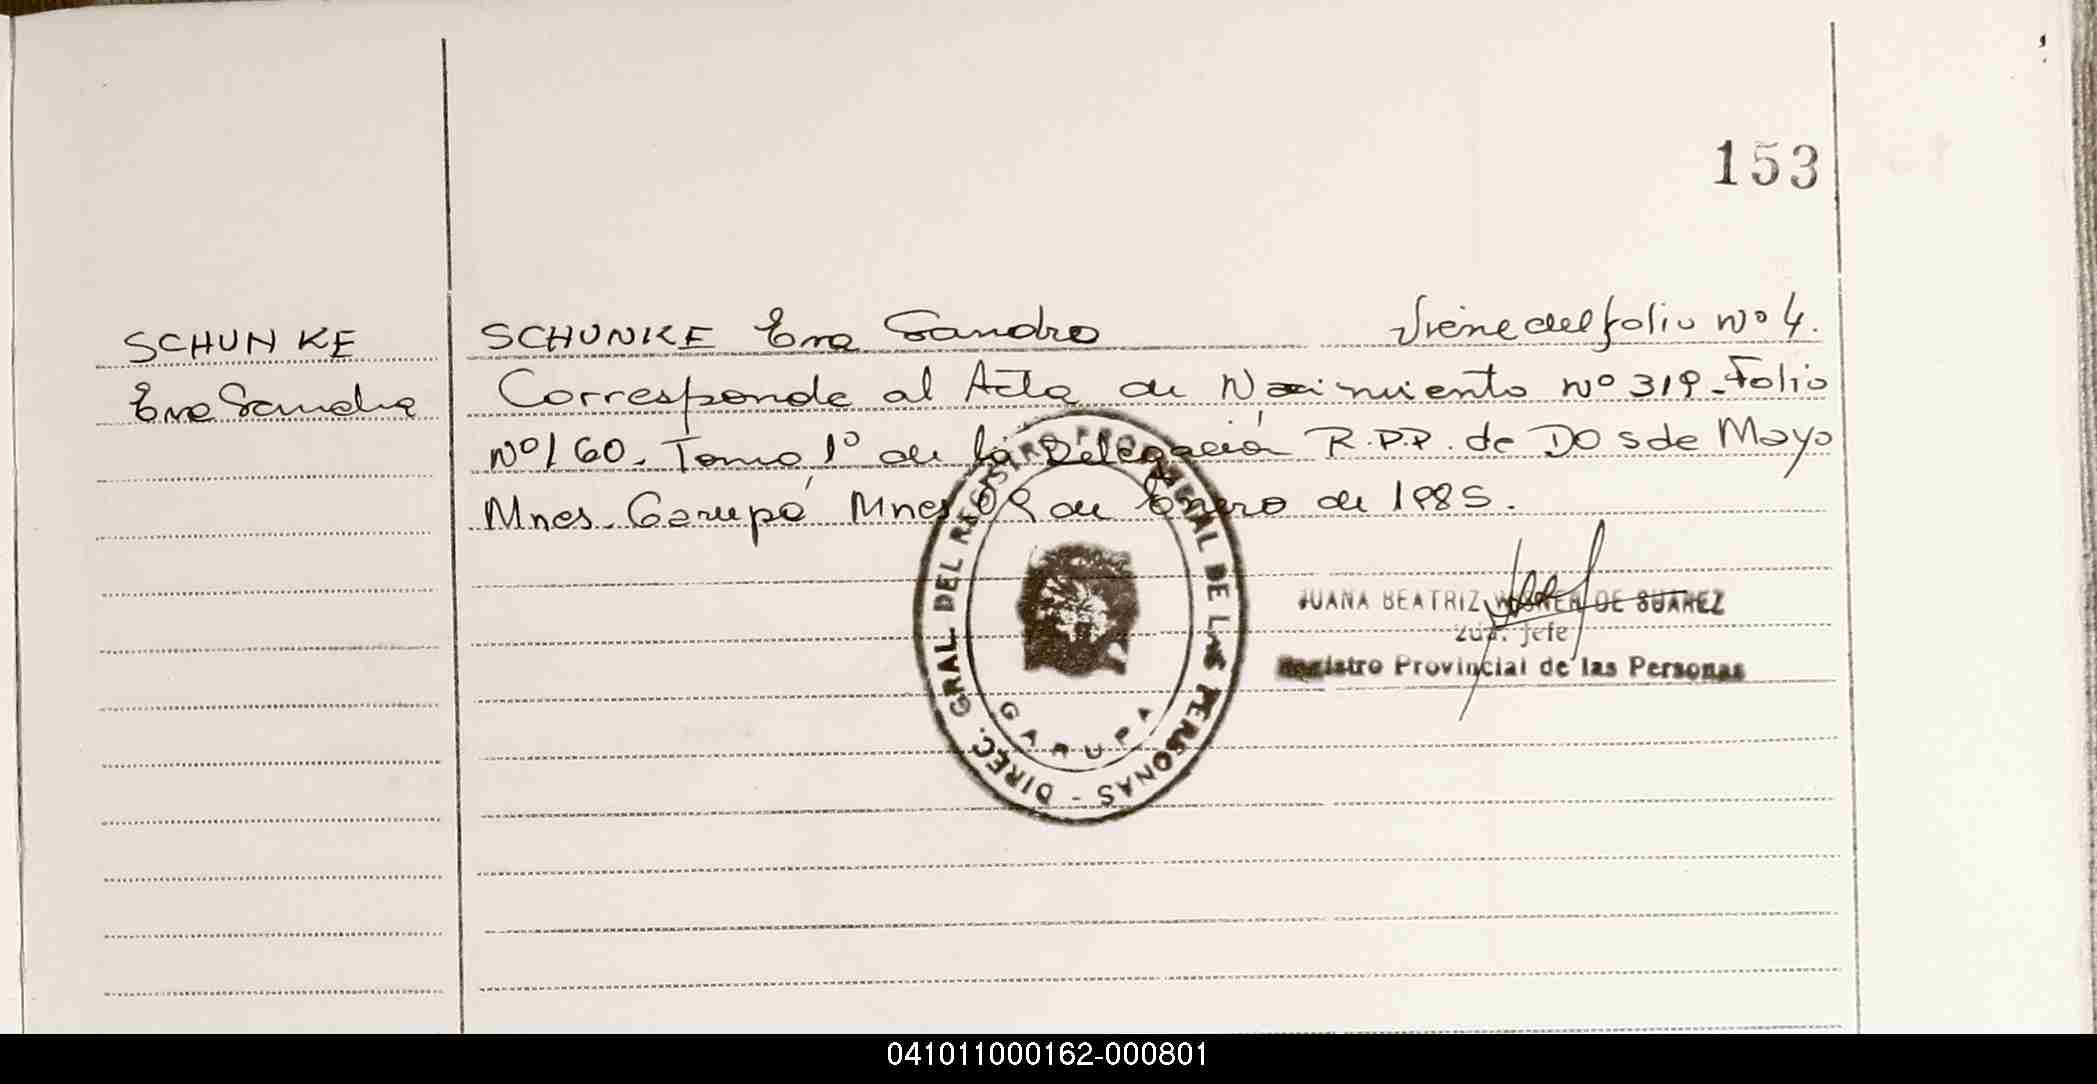 153
SCHUNKE
Eva Sandra
SCHUNKE Eva Sandra Viene del folio Nº 4.
Corresponde al Acta de Nacimiento Nº 319 - Folio
Nº 160. Tomo 1º de la Delegación R.P.P. de Dos de Mayo
Mnes. Garupá Mnes 09 de Enero de 1985.
DIREC. GRAL. DEL REGISTRO PROVINCIAL DE LAS PERSONAS -
GARUPA
JUANA BEATRIZ DE SUAREZ
2da. Jefe
Registro Provincial de las Personas
041011000162-000801